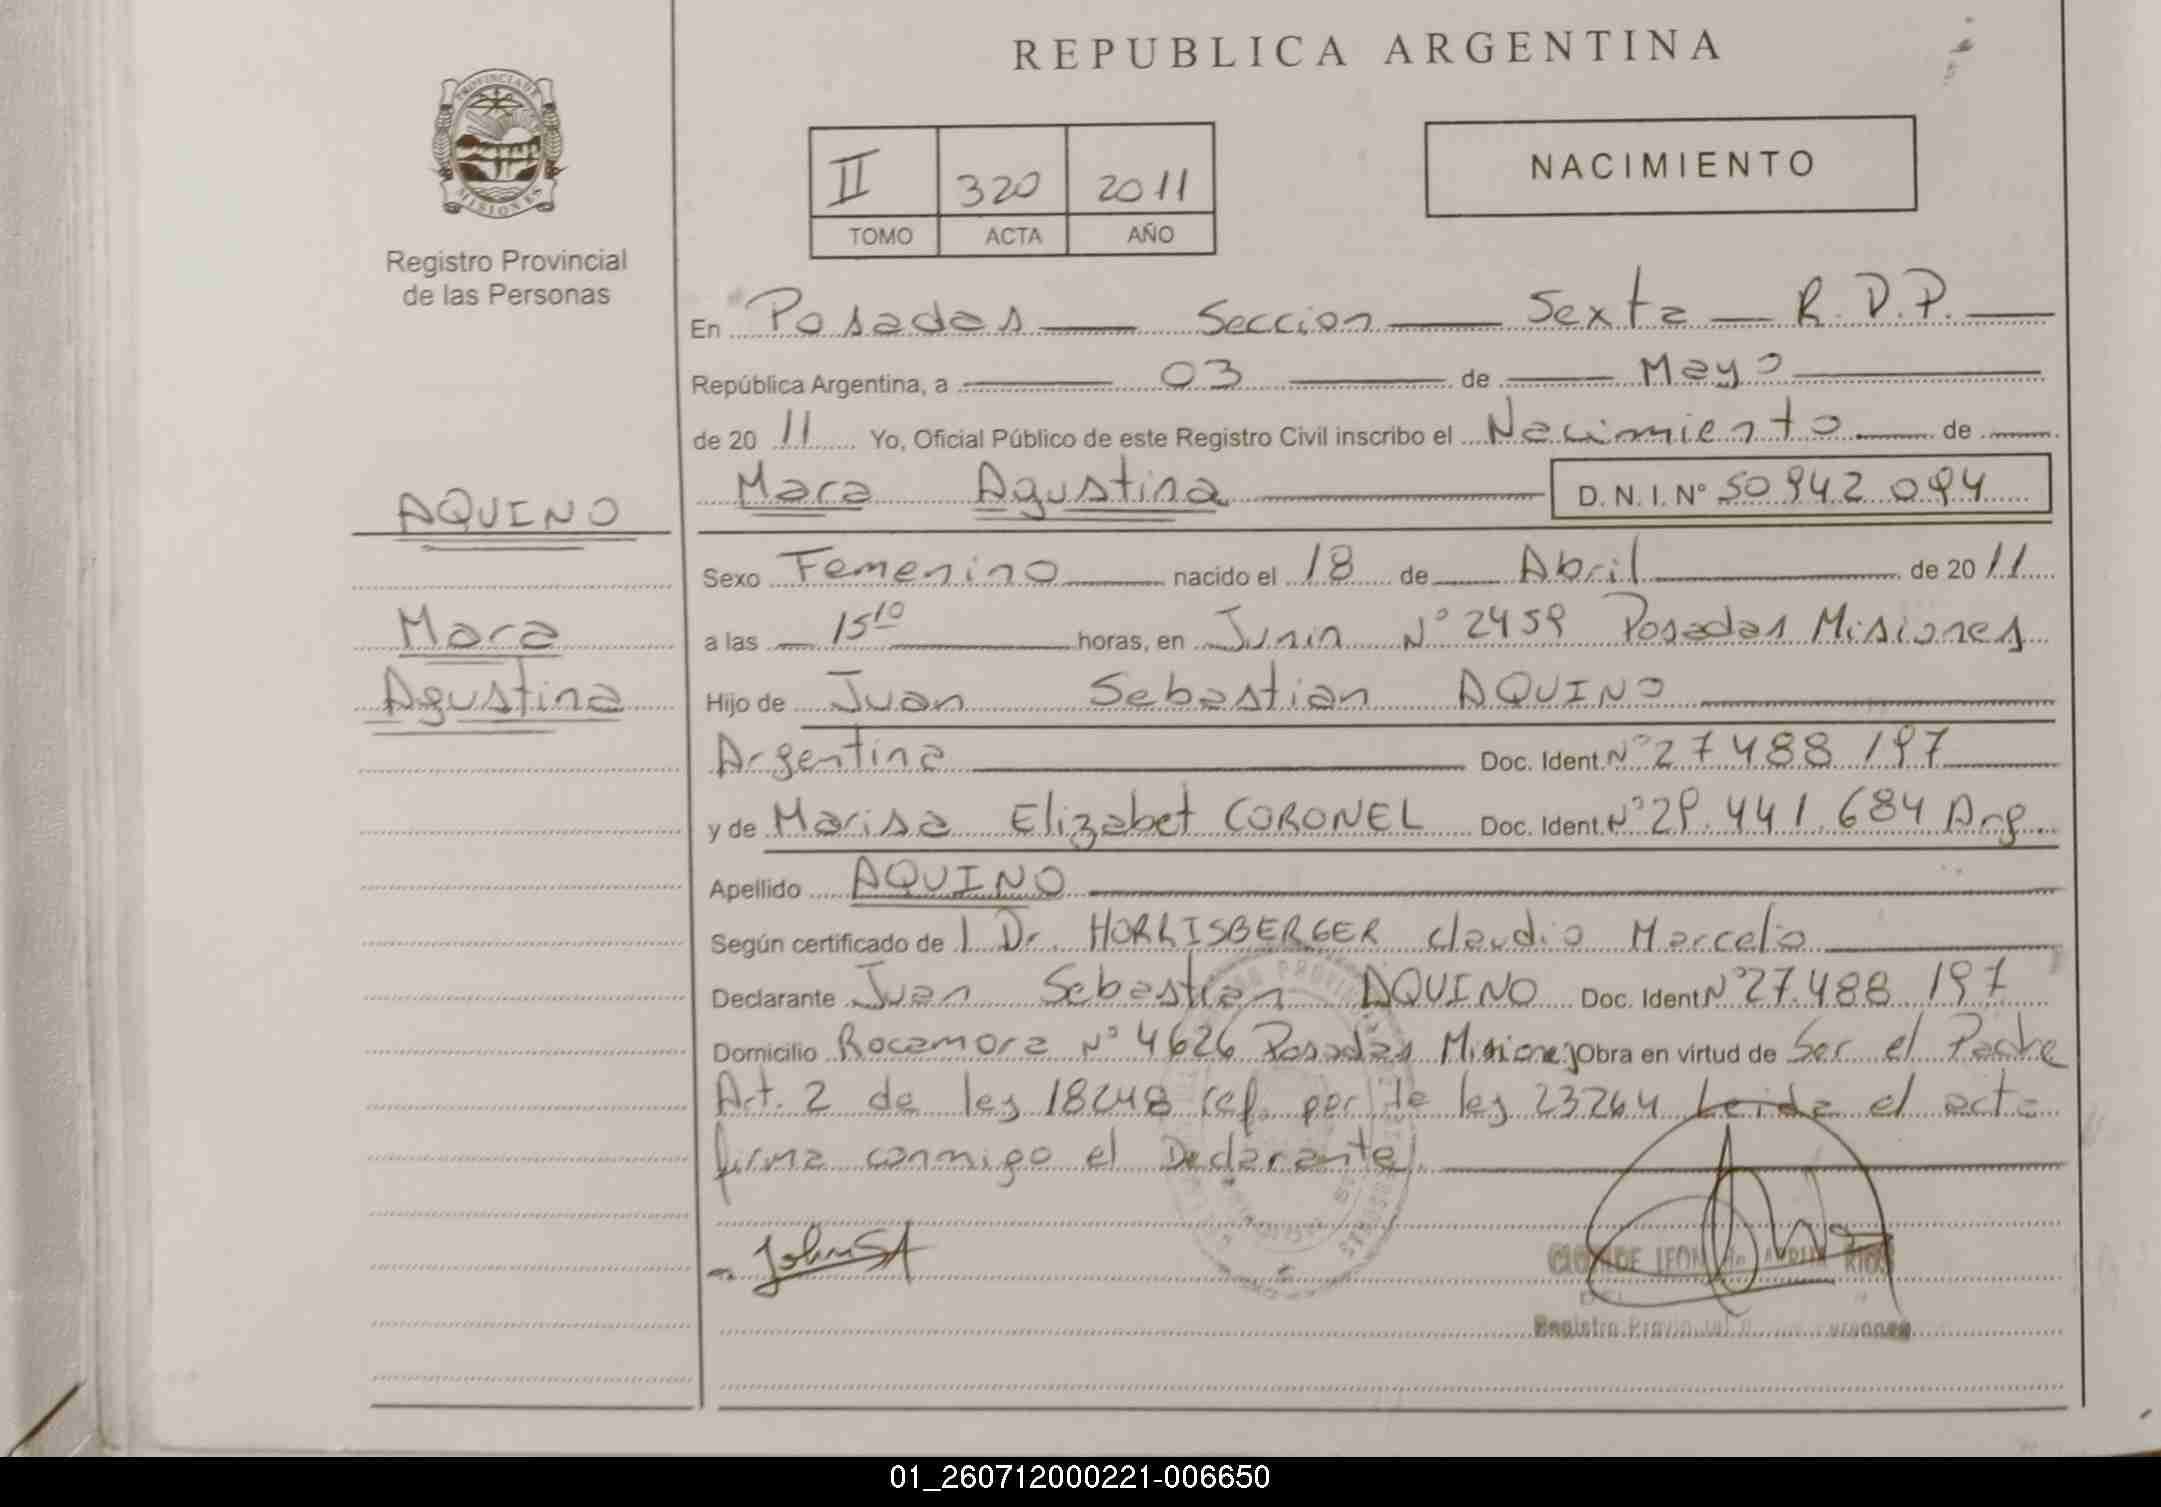 REPUBLICA ARGENTINA
PROVINCIA DE
MISIONES
Registro Provincial
de las Personas
II 320 2011
TOMO ACTA AÑO
NACIMIENTO
En Posadas Seccion Sexta R.D.P.
República Argentina, a 03 de Mayo
de 20 11 Yo, Oficial Público de este Registro Civil inscribo el Nacimiento de
Mara Agustina D. N. I. Nº 50 942 094
AQUINO
Mara
Agustina
Sexo Femenino nacido el 18 de Abril de 20 11
a las 15 10 horas, en Junin Nº 2459 Posadas Misiones
Hijo de Juan Sebastian AQUINO
Argentina Doc. Ident. Nº 27 488 197
y de Marisa Elizabet CORONEL Doc. Ident. Nº 29.441.684 Arg.
Apellido AQUINO
Según certificado de l Dr. HORRISBERGER Claudio Marcelo
Declarante Juan Sebastian AQUINO Doc. Ident Nº 27.488 197
Domicilio Rocamora Nº 4626 Posadas Misiones Obra en virtud de Ser el Padre
Art. 2 de ley 18248 ref. por la ley 23264 Leida el acta
firma conmigo el Declarante.
01_260712000221-006650